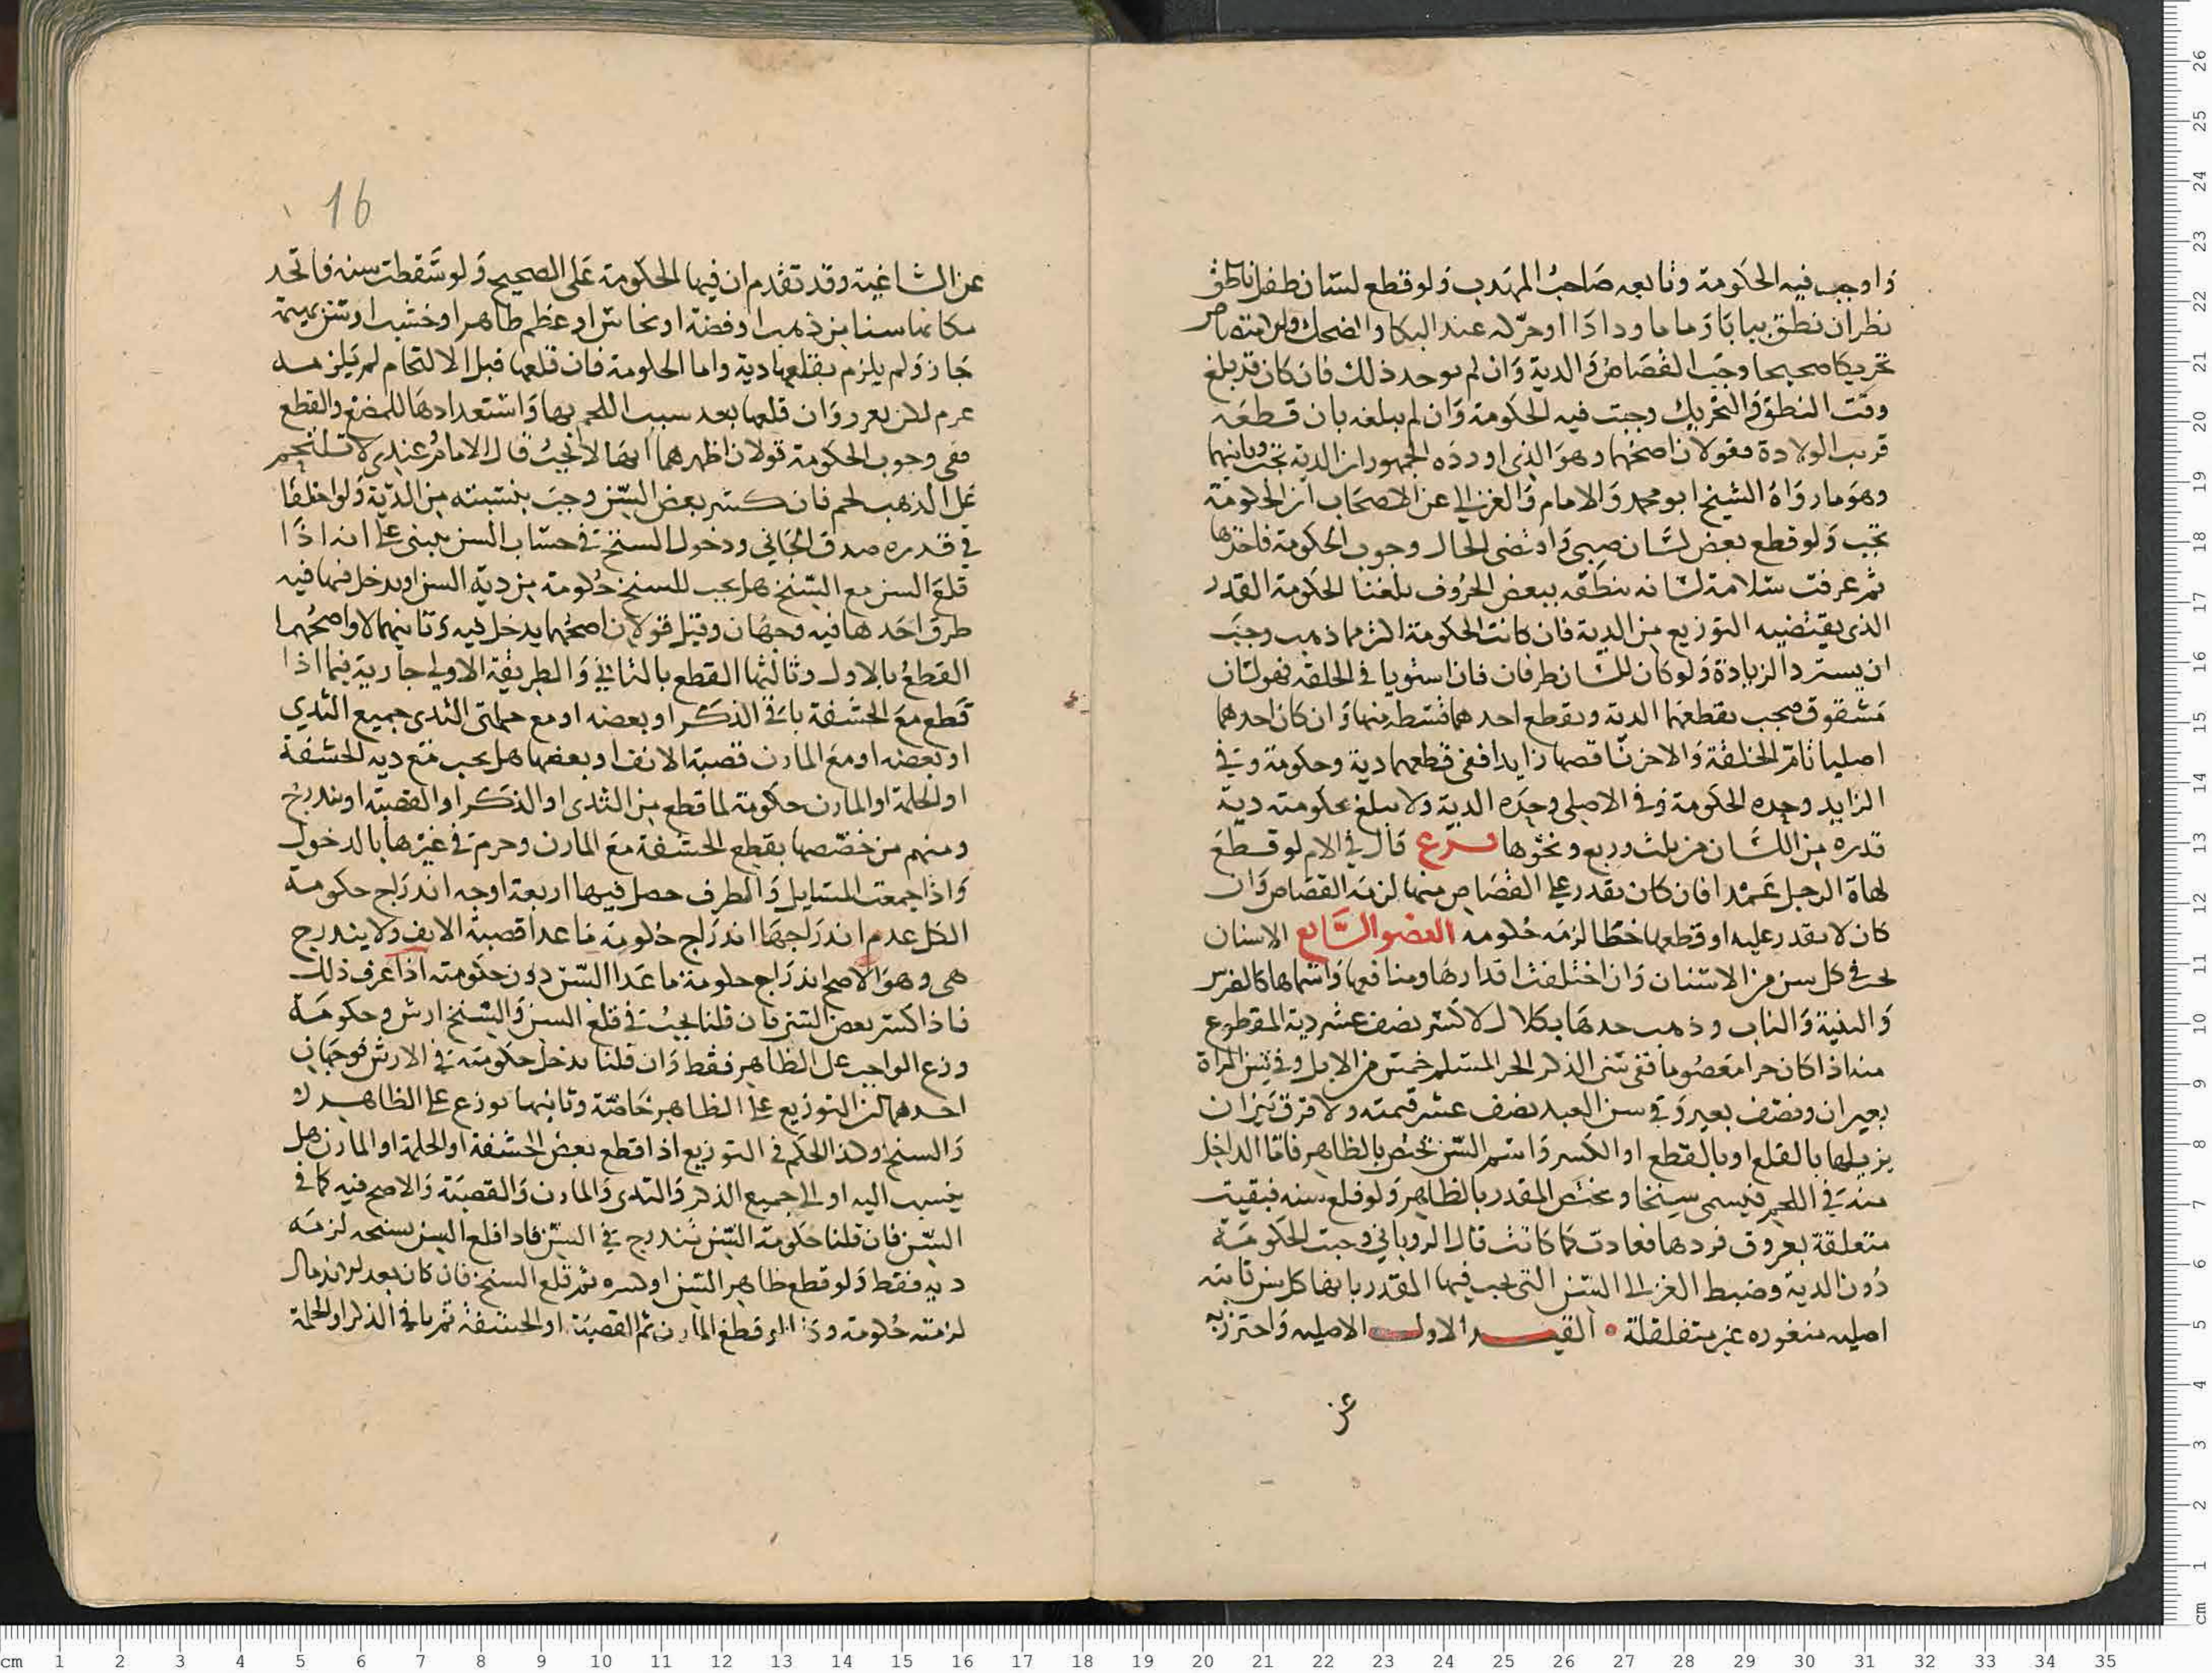 واوجب فيه الحكومة وتابعه صاحب المهذب ولو قطع لسان طفل ناطق
نظر ان نطق ببابا وماما ودادا او حركه عند البكا والضحك والامتصاص
تحريكا صحيحا وجب القصاص والدية وان لم يوجد ذلك فان كان قد بلغ
وقت النطق والتحريك وجبت فيه الحكومة وان لم يبلغه بان قطعه
قريب الولادة فقولان اصحهما وهو الذي اورده الجمهور ان الدية تجب وثانيهما
وهو ما رواه الشيخ ابو محمد والامام والغزالي عن الاصحاب ان الحكومة
تجب ولو قطع بعض لسان صبي واقتضى الحال وجوب الحكومة فاخذها
ثم عرفت سلامة لسانه بنطقه ببعض الحروف بلغنا الحكومة القدر
الذي يقتضيه التوزيع من الدية فان كانت الحكومة اكثر مما ذهب وجب
ان يسترد الزيادة ولو كان للسان طرفان فان استويا في الخلقة فهو لسان
مشقوق فيجب بقطعهما الدية وبقطع احدهما قسطه منها وان كان احدهما
اصليا تام الخلقة والاخر ناقصا زايدا ففي قطعهما دية وحكومة وفي
الزايد وحده الحكومة وفي الاصلي وحده الدية ولا يبلغ بحكومته دية
قدره من اللسان من ثلث وربع ونحوها فرع قال في الام لو قطع
لهاة الرجل عمدا فان كان يقدر على القصاص منها لزمه القصاص وان
كان لا يقدر عليه او قطعها خطا لزمه حكومه العضو السابع الاسنان
يجب في كل سن من الاسنان وان اختلفت اقدارها ومنافعها واسماها كالضرس
والثنية والناب وذهب حدها بكلال لا كسر نصف عشر دية المقطوع
منه اذا كان حرا معصوما ففي سن الذكر الحر المسلم خمس من الابل وفي سن المراة
بعيران ونصف بعير وفي سن العبد نصف عشر قيمته ولا فرق بين ان
يزيلها بالقلع او بالقطع او الكسر واسم السن يختص بالظاهر فاما الداخل
منه في اللحم فيسمى سنخا ويختص المقدر بالظاهر ولو قلع سنه فبقيت
متعلقة بعروق فردها فعادت كما كانت قال الروياني وجبت الحكومة
دون الدية وضبط الغزالي السن التي يجب فيها المقدر بانها كل سن ثابته
اصليه مثغوره غير متقلقلة • القيد الاول الاصليه واحترز به
عن
16
عن الشاغية وقد تقدم ان فيها الحكومة على الصحيح ولو سقطت سنه فاتخذ
مكانها سنا من ذهب او فضة او نحاس او عظم طاهر او خشب او سن بهيمة
جاز ولم يلزم بقلعها دية واما الحكومة فان قلعها قبل الالتحام لم يلزمه
غرم لكن يعزر وان قلعها بعد سبب اللحم بها واستعدادها للمضغ والقطع
ففي وجوب الحكومة قولان اظهرهما انها لا تجب قال الامام عندي لا تلتحم
على الذهب لحم فان كسر بعض السن وجب بنسبته من الدية ولو اختلفا
في قدره صدق الجاني ودخول السنخ في حساب السن يبنى على انه اذا
قلع السن مع السنخ هل يجب للسنخ حكومة مع دية السن او يدخل فيها فيه
طرق احدها فيه وجهان وقيل قولان اصحهما يدخل فيه وثانيهما لا واصحهما
القطع بالاول وثالثها القطع بالثاني والطريقة الاولى جارية فيما اذا
قطع مع الحشفة باقي الذكر او بعضه او مع حلمتي الثدي جميع الثدي
او بعضه او مع المارن قصبة الانف او بعضها هل يجب مع دية الحشفة
او الحلمة او المارن حكومة لما قطع من الثدي او الذكر او القصبة او يندرج
ومنهم من خصصها بقطع الحشفة مع المارن وجزم في غيرها بالدخول
واذا جمعت المسايل والطرف حصل فيها اربعة اوجه اندراج حكومة
الكل عدم اندراجها اندراج حكومة ما عدا قصبة الانف ولا يندرج
هي وهو الاصح اندراج حكومة ما عدا السن دون حكومته اذا عرف ذلك
فاذا كسر بعض السن فان قلنا يجب في قلع السن والسنخ ارش وحكومة
وزع الواجب على الظاهر فقط وان قلنا يدخل حكومته في الارش فوجهان
احدهما ان التوزيع على الظاهر خاصة وثانيهما يوزع على الظاهر
والسنخ وكذا الحكم في التوزيع اذا قطع بعض الحشفة او الحلمة او المارن هل
ينسب اليه او الى جميع الذكر والثدي والمارن والقصبة والاصح فيه كما في
السن فان قلنا حكومة السن تندرج في السن فاذا قلع السن بسنخه لزمه
دية فقط ولو قطع ظاهر السن او كسره ثم قلع السنخ فان كان بعد الاندمال
لزمته حكومة وكذا لو قطع المارن ثم القصبة او الحشفة ثم باقي الذكر او الحلمة